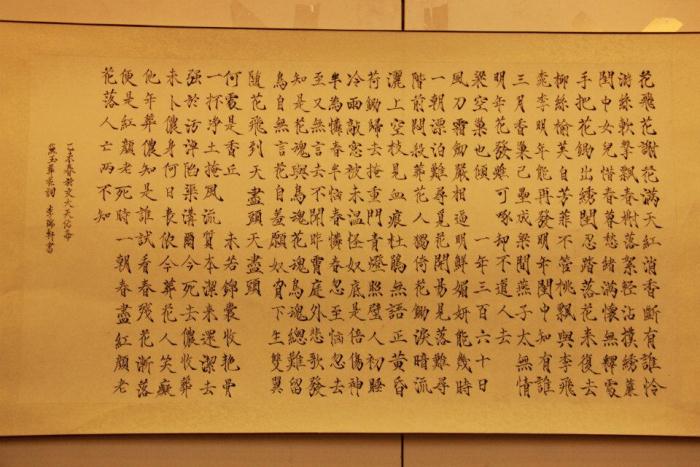 花飛花謝花滿天紅消香斷有誰怜
游絲軟擊飄春榭落絮輕沾撲綉簾
閨中女兒惜春暮愁緒滿懷無釋處
手把花鋤出綉閨忍踏落花來復去
柳絲榆莢自芳菲不管桃飄與李飛
桃李明年能再發明年閨中知有誰
三月香巢已壘成梁間燕子太無情
明年花發雖可啄却不道人去
梁空巢也傾 一年三百六十日
風刀霜劍嚴相逼明鮮媚妍能幾時
一朝漂泊難尋覓花開易見落難尋
階前悶殺葬花人獨倚花鋤淚暗流
灑上空枝見血痕杜鵑無語正黃昏
荷鋤歸去掩重門青燈照壁人初睡
冷雨敲窗被未溫怪奴底是倍傷神
半為憐春半惱春憐春忽至惱忽去
至又無言去不聞昨宵庭外悲歌發
知是花魂與鳥魂花魂鳥魂總難留
鳥自無言花自羞願奴脅下生雙翼
隨花飛列天盡頭天盡頭
何處是香丘 未若錦囊收艷骨
一抔淨土掩風流質本潔來還潔去
强於污淖陷渠溝爾今死去儂收葬
未卜儂身何日喪儂今葬花人笑癡
他年葬儂知是誰試看春殘花漸落
便是紅顏老死時一朝春盡紅顏老
花落人亡兩不知
乙未春於文大天佑
黛玉葬花詞 李瑞書